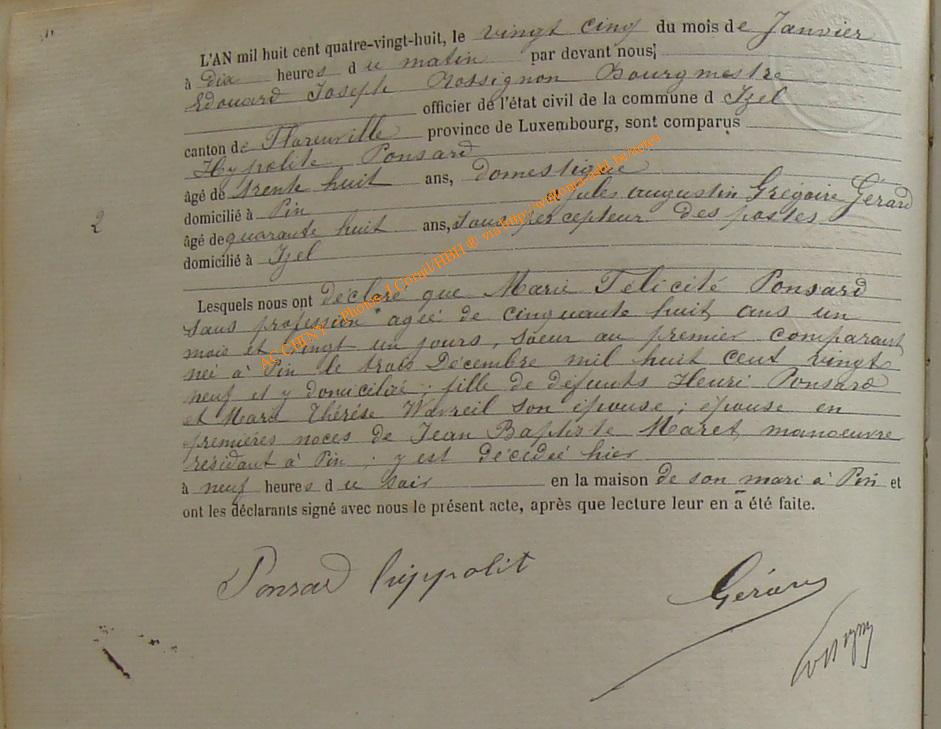 L'AN mil huit cent quatre-vingt-huit, le vingt cinq du mois de Janvier
à Dix heures d u matin par devant nous,
Edouard Joseph Rossignon Bourgmestre
officier de l'état civil de la commune d Izel
canton de Florenville province de Luxembourg, sont comparus
Hypolite Ponsard
âgé de trente huit ans, domestique
domicilié à Pin et Jules Augustin Grégoire Gérard
âgé de quarante huit ans, sous percepteur des postes
domicilié à Izel
2
Lesquels nous ont déclaré que Marie Félicité Ponsard
sans profession agée de cinquante huit ans un
mois et vingt un jours, soeur au premier comparant
née à Pin le trois Décembre mil huit cent vingt
neuf et y domiciliée ; fille de défunts Henri Ponsard
et Marie Thérèse Wavreil son épouse ; épouse en
premières noces de Jean Baptiste Maret, manoeuvre
résidant à Pin ; y est décédée hier
à neuf heures d u soir en la maison de son mari à Pin et
ont les déclarants signé avec nous le présent acte, après que lecture leur en a été faite.
Ponsard hippolit
Gérard
AC CHINY - Photos J.Cornil/HBH ©